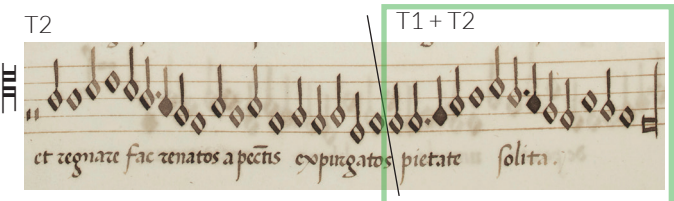 T2
T1 + T2
et regnare fac renatos a pec̄tis expurgatos pietate solita.